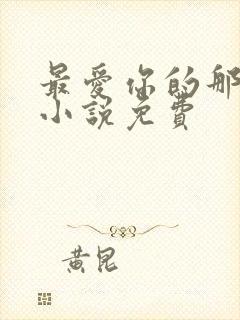 最爱你的那
小说免费
黄昆